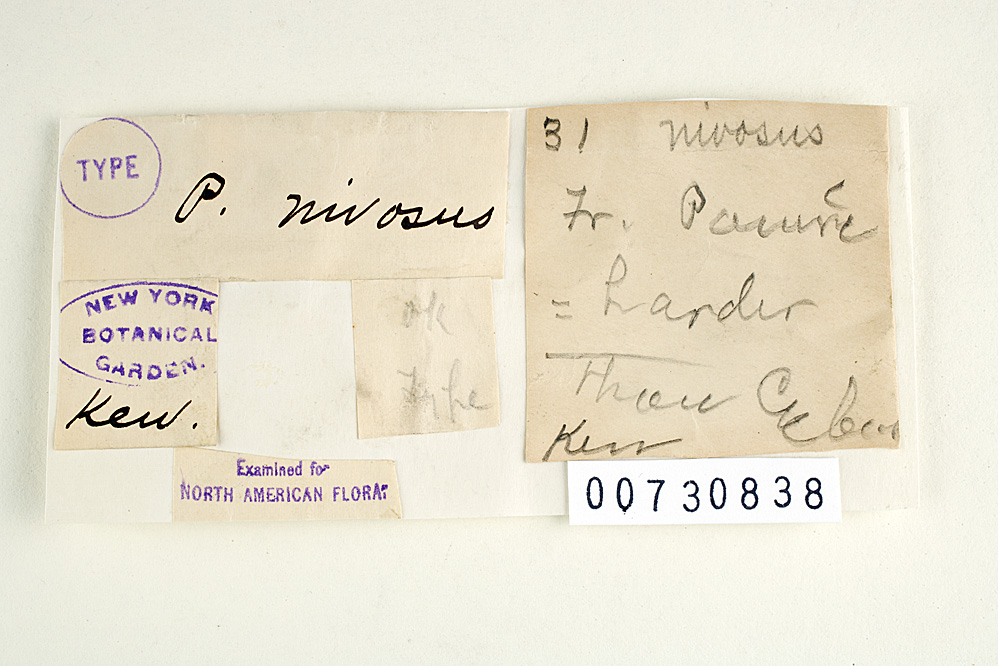 TYPE
P. nivosus
NEW YORK
BOTANICAL
GARDEN.
Kew.
ok
Type
Examined for
NORTH AMERICAN FLORA
31 nivosus
Fr.
= harder
Than
Kew
00730838